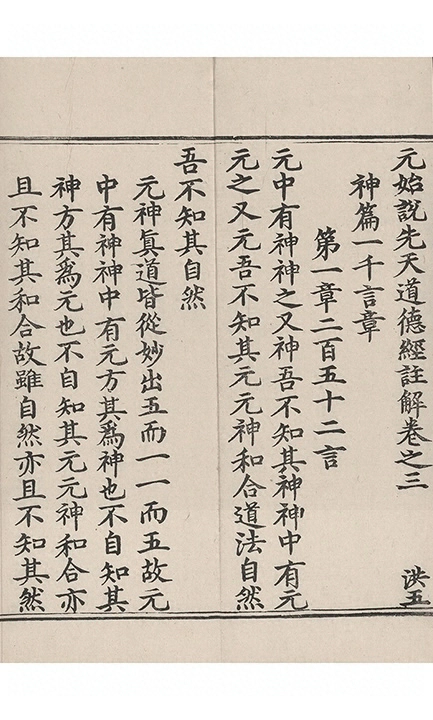 元始說先天道德經註解卷之三 洪五
神篇一千言章
第一章二百五十二言
元中有神神之又神吾不知其神神中有元
元之又元吾不知其元元神和合道法自然
吾不知其自然
元神眞道皆從妙出五而一一而五故元
中有神神中有元方其爲神也不自知其
神方其爲元也不自知其元元神和合亦
且不知其和合故雖自然亦且不知其然